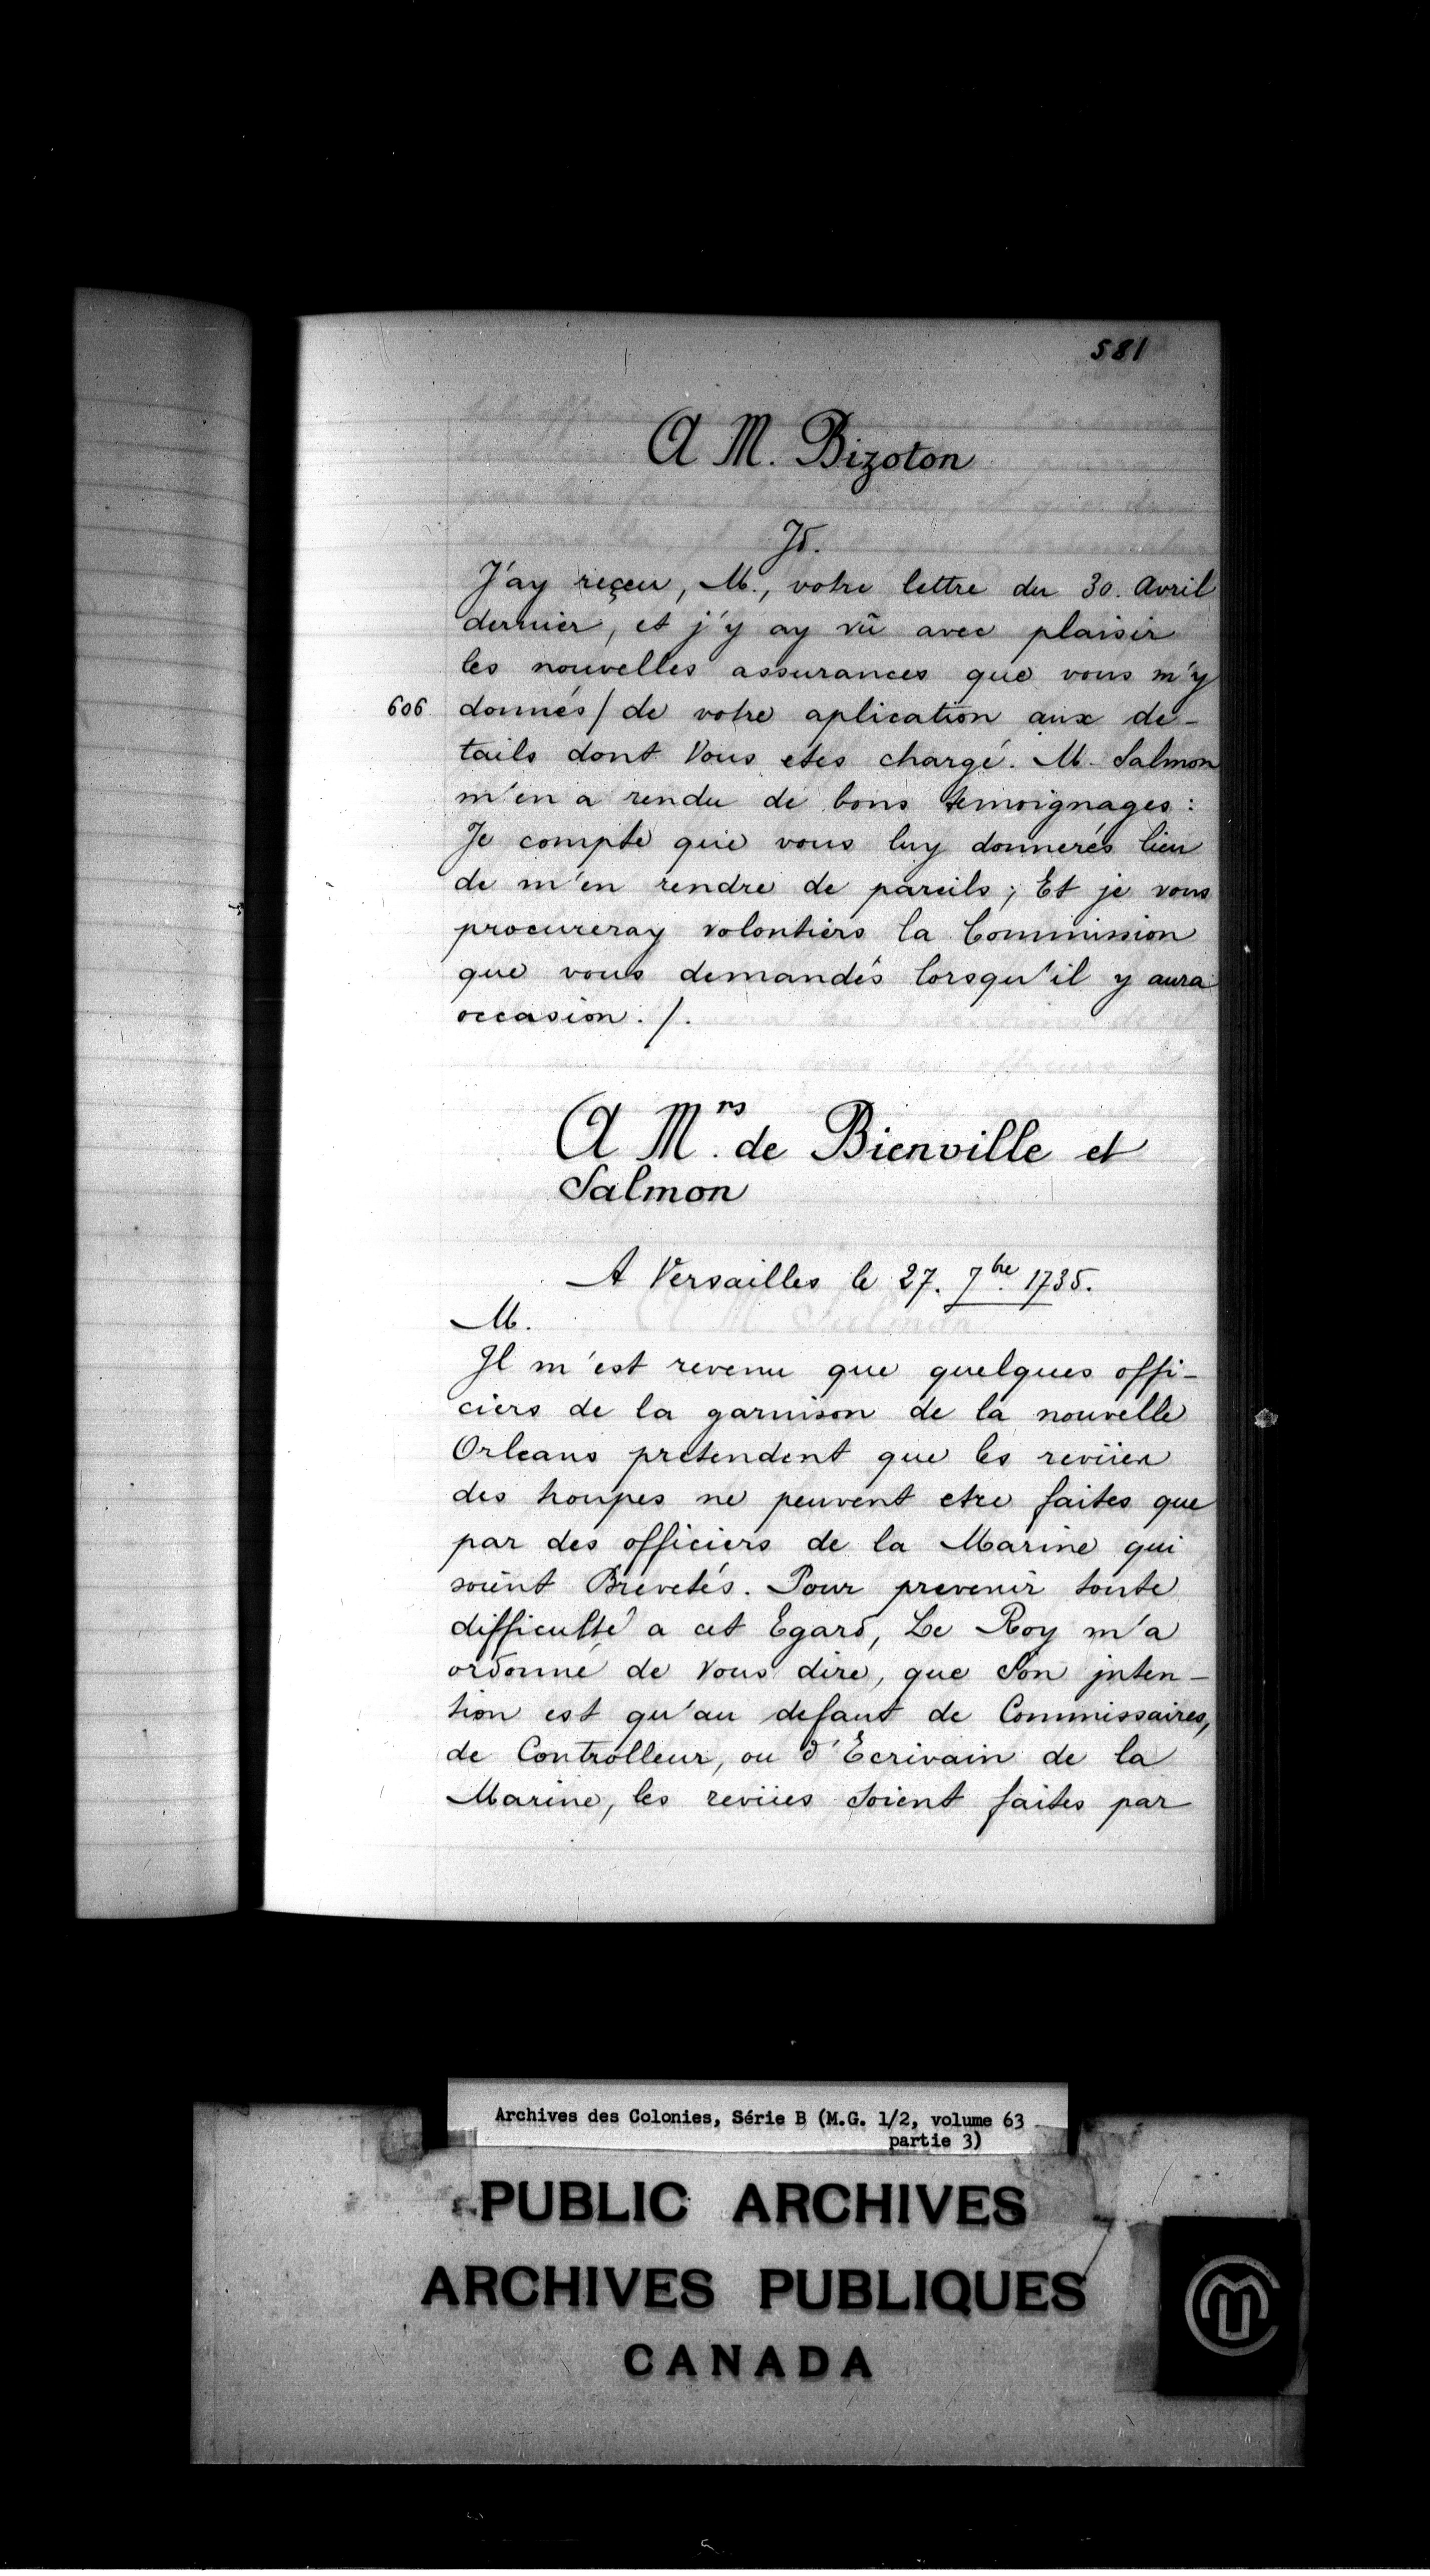 581
A M. Bizoton
Id.
J'ay reçeu, M., votre lettre du 30. Avril
dernier, et j'y ay vû avec plaisir
les nouvelles assurances que vous m'y
606 donnés / de votre aplication aux de-
tails dont Vous etes chargé. M. Salmon
m'en a rendu de bons temoignages :
Je compte que vous luy donnerés lieu
de m'en rendre de pareils ; Et je vous
procureray volontiers la Commission
que vous demandés lorsqu'il y aura
occasion. /.
A Mrs. de Bienville et
Salmon
A Versailles le 27. 7bre. 1735.
M.
Il m'est revenu que quelques offi-
ciers de la garnison de la nouvelle
Orleans pretendent que les revües
des troupes ne peuvent etre faites que
par des officiers de la Marine qui
soient Brevetés. Pour prevenir toute
difficulté a cet Egard, Le Roy m'a
ordonné de Vous dire, que Son inten-
tion est qu'au defaut de Commissaires,
de Controlleur, ou d'Ecrivain de la
Marine, les revües Soient faites par
Archives des Colonies, Série B (M.G. 1/2, volume 63
partie 3)
PUBLIC ARCHIVES
ARCHIVES PUBLIQUES
CANADA